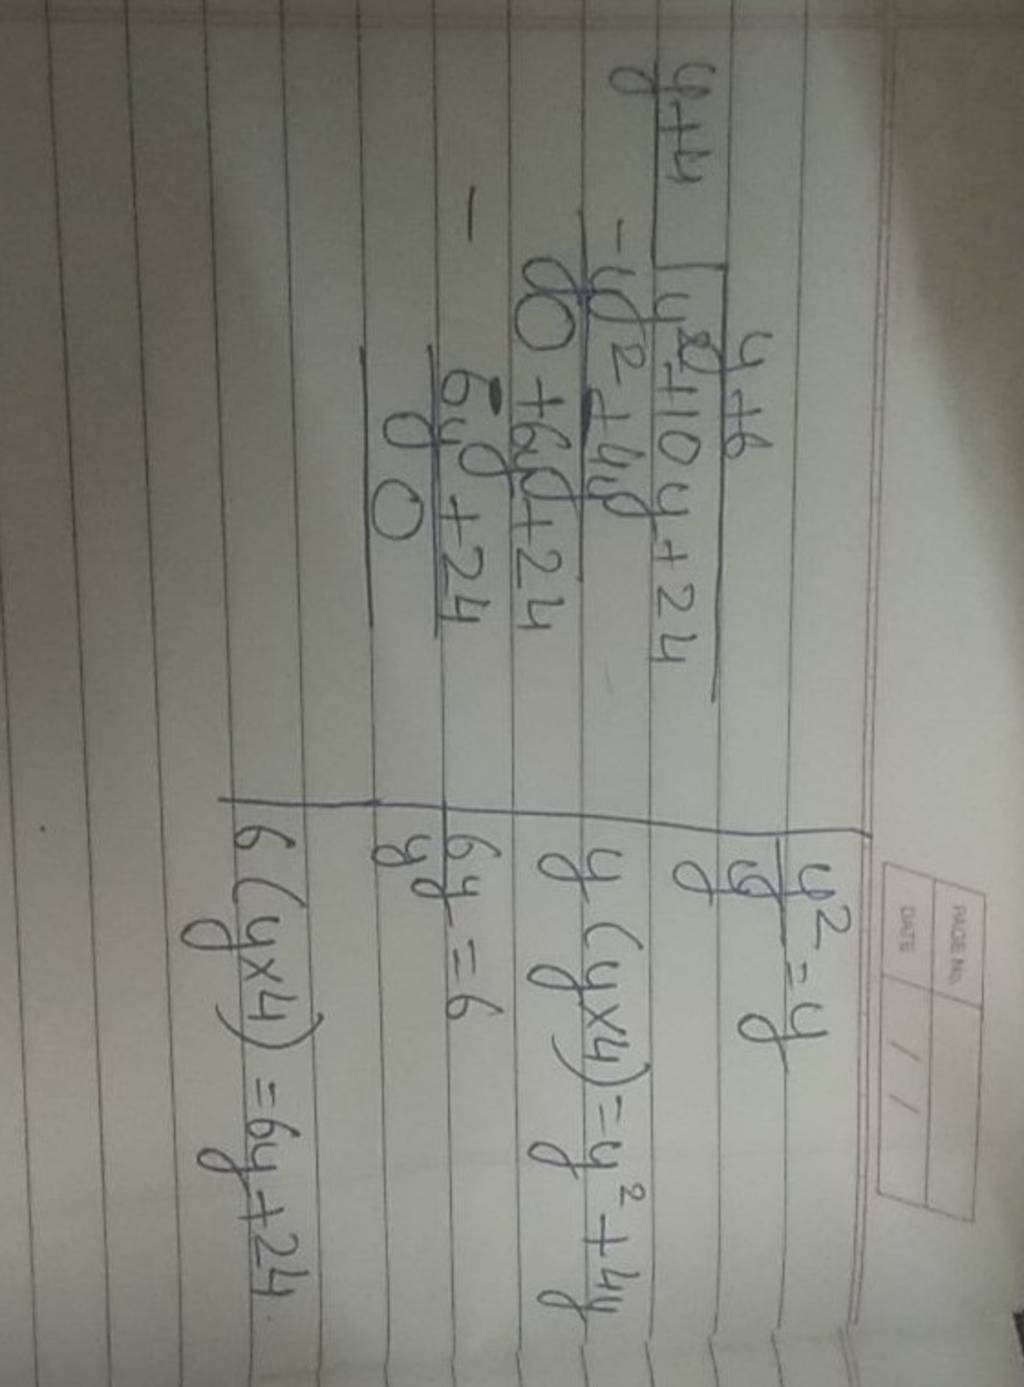 PAGE NO.
DATE / /
y+6
y+4 y²+10y+24
-y²+4y
0 +6y+24
- 6y+24
0
y²/y = y
y(y×4)=y²+4y
6y/y = 6
6(y×4)=6y+24